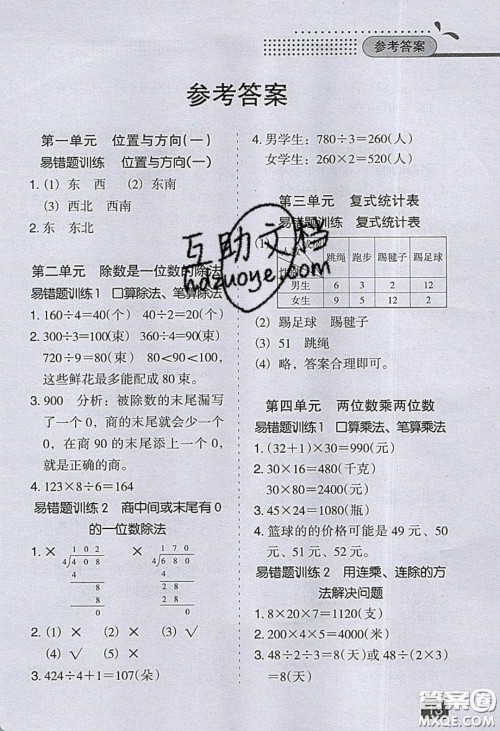 参考答案
参考答案
第一单元 位置与方向(一)
易错题训练 位置与方向(一)
1. (1) 东 西 (2) 东南
(3) 西北 西南
2. 东 东北
第二单元 除数是一位数的除法
易错题训练1 口算除法、笔算除法
1. 160÷4=40(个) 40÷2=20(个)
2. 300÷3=100(束)
720÷9=80(束) 80<100
这些鲜花最多能配成 80 束。
3. 900 分析：被除数的末尾漏写
了一个 0，商的末尾就会少一个
0，在商 90 的末尾再添上一个 0
就是正确的商。
4. 123×8÷6=164
易错题训练 2 商中间或末尾有 0
的一位数除法
1. × ×
1 0 2 1 7 0
4 4 0 8 4 6 8 0
4 4
8 2 8
8 2 8
0 0
2. (1) × (2) × (3) ×
(4) √ (5) ×
3. 424÷4+1=107(朵)
4. 男学生：780÷3=260(人)
女学生：260×2=520(人)
第三单元 复式统计表
易错题训练 复式统计表
(1)
跳绳 跑步 踢毽子 踢足球
男生 6 3 2 12
女生 9 5 12 2
(2) 踢足球 踢毽子
(3) 51 跳绳
(4) 略，答案合理即可。
第四单元 两位数乘两位数
易错题训练1 口算乘法、笔算乘法
1. (32+1)×30=990(元)
2. 30×16=480(千克)
30×80=2400(元)
3. 45×24=1080(瓶)
4. 篮球的的价格可能是 49 元、50
元、51 元、52 元。
易错题训练 2 用连乘、连除的方
法解决问题
1. 8×20×7=1120(支)
2. 200×4×5=4000(米)
3. 48÷2÷3=8(天)或 48÷(2×3)
=8(天)
互助文档
hdzuoye.com
答案圈